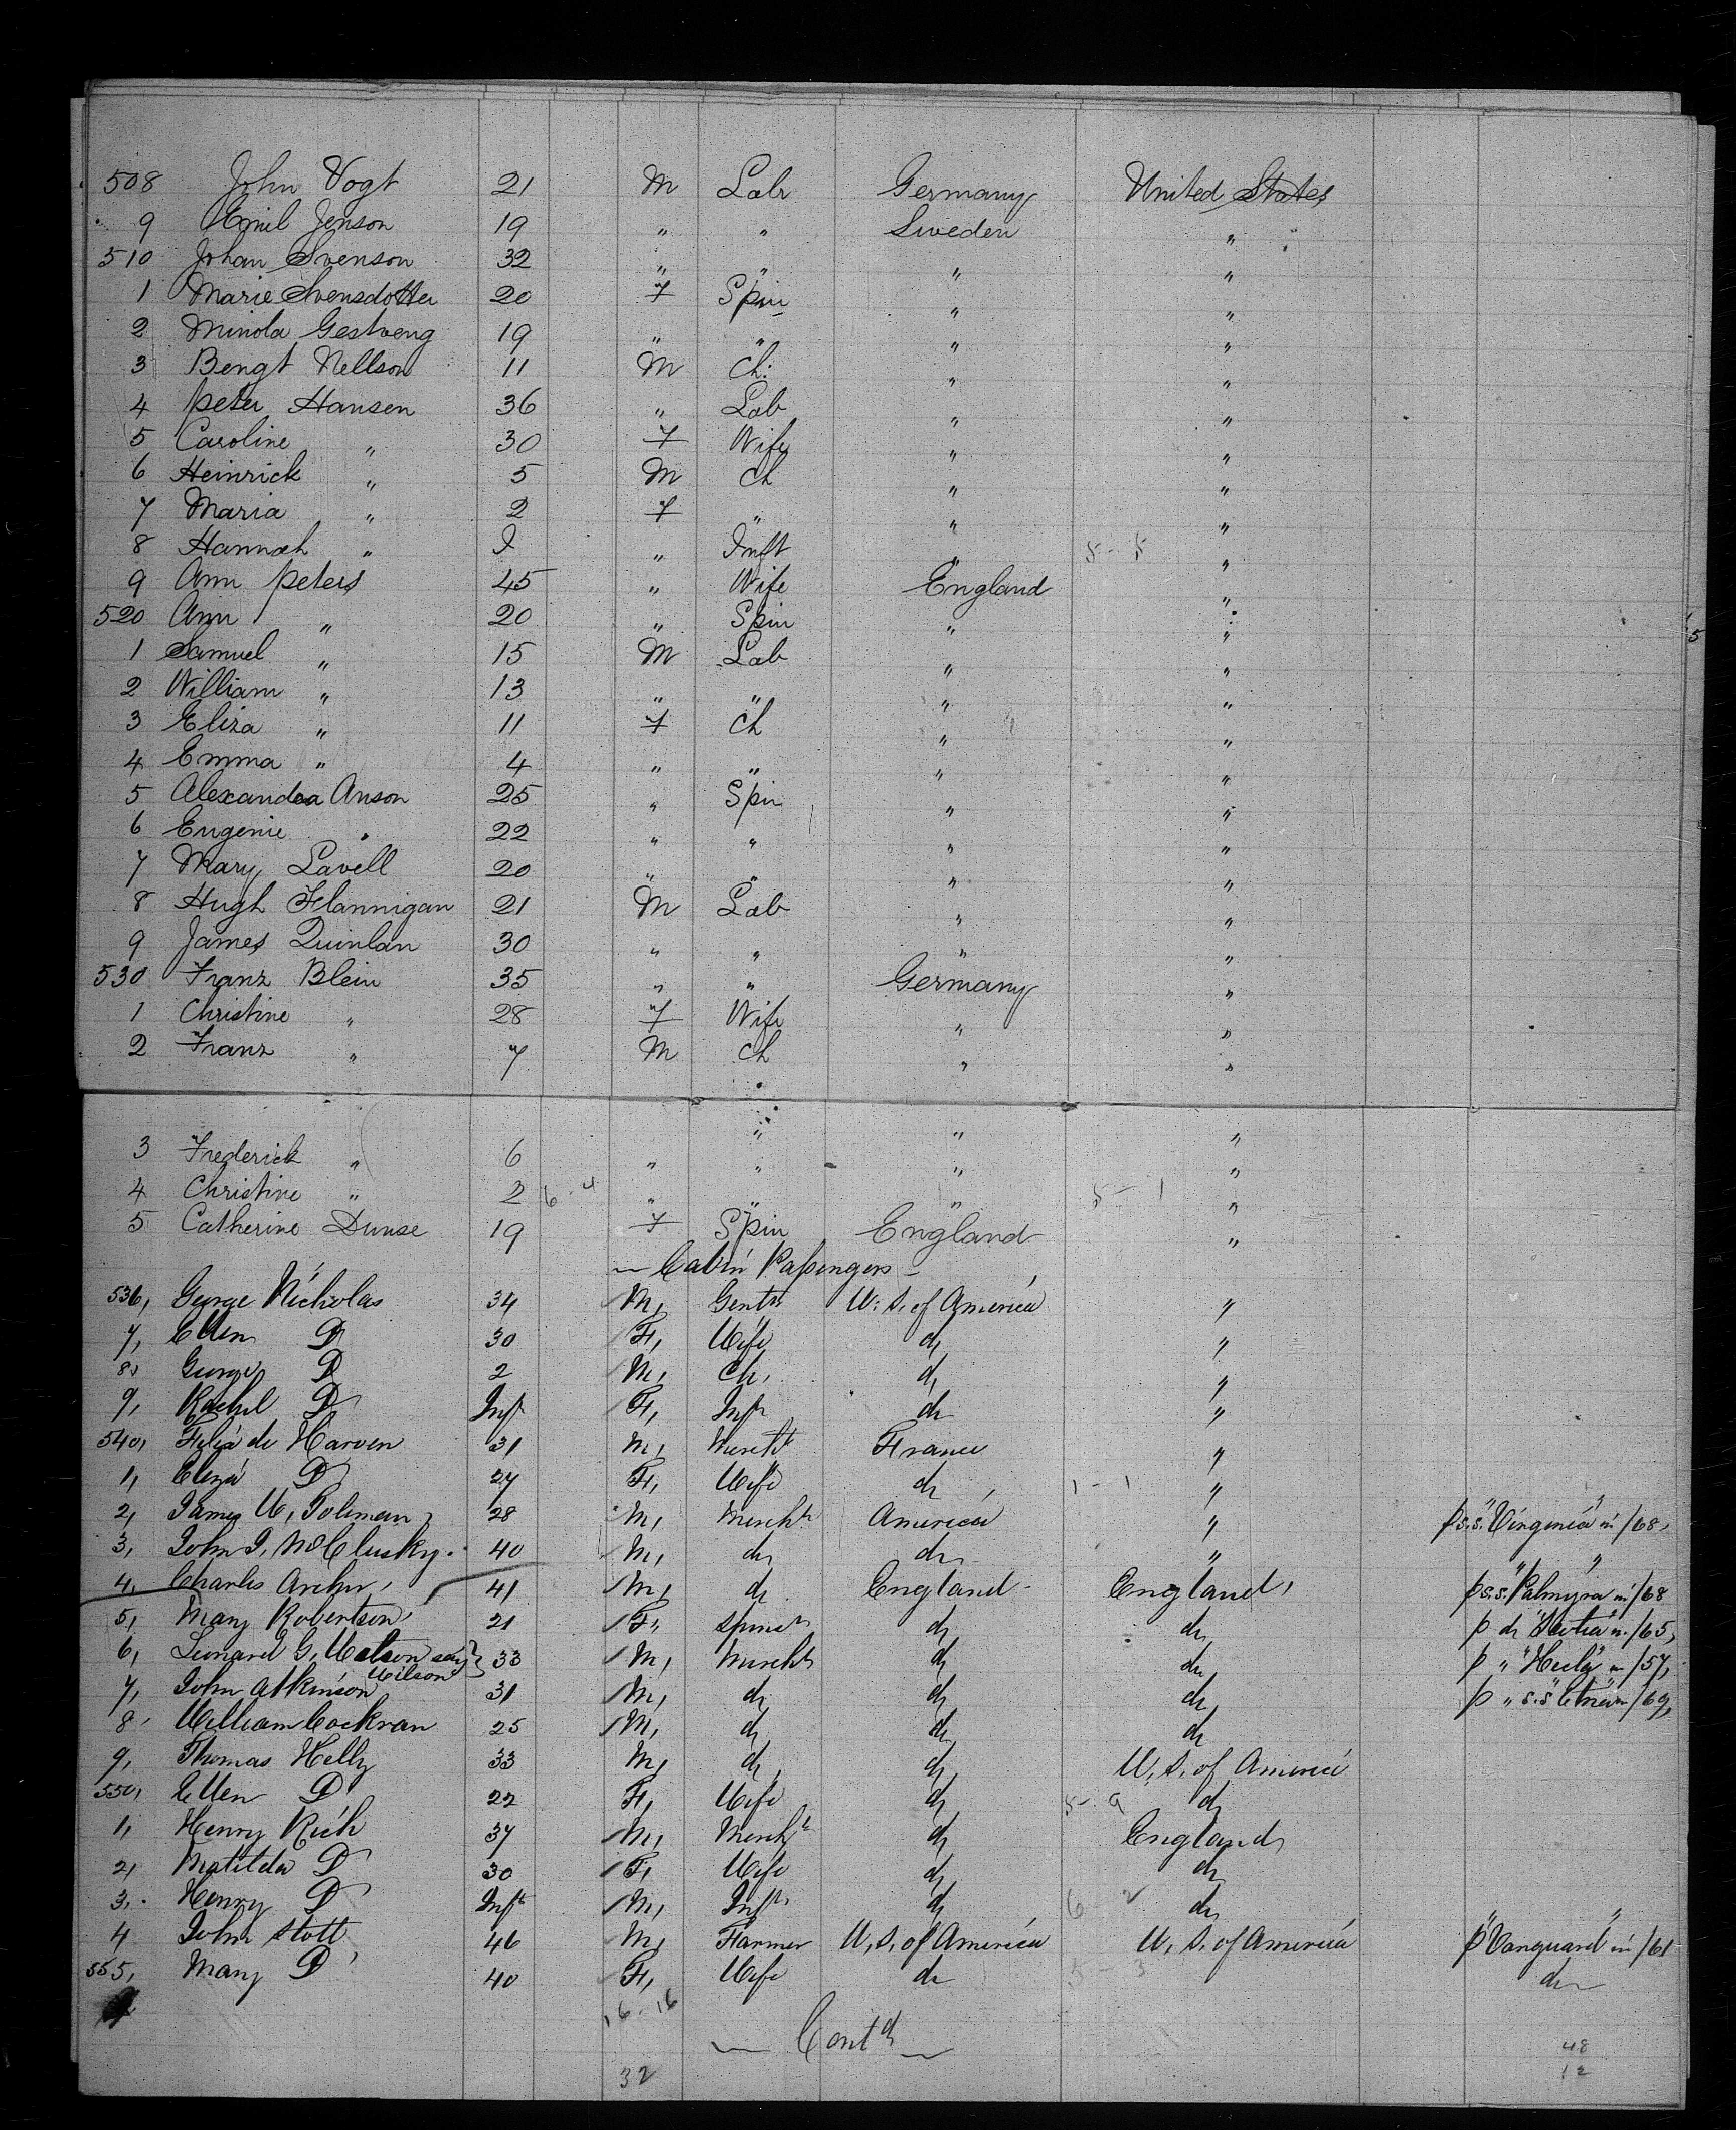 508 John Vogt 21 M Labr Germany United States
9 Emil Jenson 19 " " Sweden "
510 Johan Svenson 32 " " " "
1 Marie Svensdotter 20 F Spin " "
2 Minola Gestveng 19 " " " "
3 Bengt Nellson 11 M Ch: " "
4 Peter Hansen 36 " Lab " "
5 Caroline " 30 F Wife " "
6 Heinrick " 5 M Ch " "
7 Maria " 2 F " " "
8 Hannah " I " Inft " 5-5 "
9 Ann Peters 45 " Wife England "
520 Ann " 20 " Spin " "
1 Samuel " 15 M Lab " "
2 William " 13 " " " "
3 Eliza " 11 F Ch " "
4 Emma " 4 " " " "
5 Alexandra Anson 25 " Spin " "
6 Eugenie " 22 " " " "
7 Mary Lavell 20 " " " "
8 Hugh Flannigan 21 M Lab " "
9 James Quinlan 30 " " " "
530 Franz Blein 35 " " Germany "
1 Christine " 28 F Wife " "
2 Franz " 7 M Ch " "
" " "
3 Frederick " 6 " " " "
4 Christine " 2 6-4 " " " 5-1 "
5 Catherine Dunse 19 F Spin England "
— Cabin Passengers —
536, George Nicholas 34 M, Gentn U. S. of America "
7, Ellen Do 30 F, Wife do "
8, George Do 2 M, Ch, do "
9, Rachel Do Inft F, Inft do "
540, de Harven 31 M, Mercht France "
1, Eliza Do 27 F, Wife do 1-1 "
2, James W, Toleman 28 M, Mercht America " p s.s. "Virginia" in /68,
3, John J, McClusky 40 M, do do "
4, Charles Archer, 41 M, do England England, p s.s. "Palmyra" in /68
5, Mary Robertson, 21 F, Spinr do do p do "Scotia" in /65,
6, Leonard G, Watson say Wilson 33 M, Mercht do do p " "Hecla" in /57,
7, John Atkinson 31 M, do do do p " s.s "Etna" in /69,
8, William Cockran 25 M, do do do
9, Thomas Helly 33 M, do do U. S. of America
550, Ellen Do 22 F, Wife do 5-9 do
1, Henry Rich 37 M, Mercht do England
2, Matilda Do 30 F, Wife do do
3, Henry Do Inft M, Inft, do 6-2 do
4 John Stott 46 M, Farmer U, S. of America U. S. of America p "Vanguard" in /61
555, Mary Do 40 F, Wife do 5-3 do
16-16
— Contd —
48
32 12